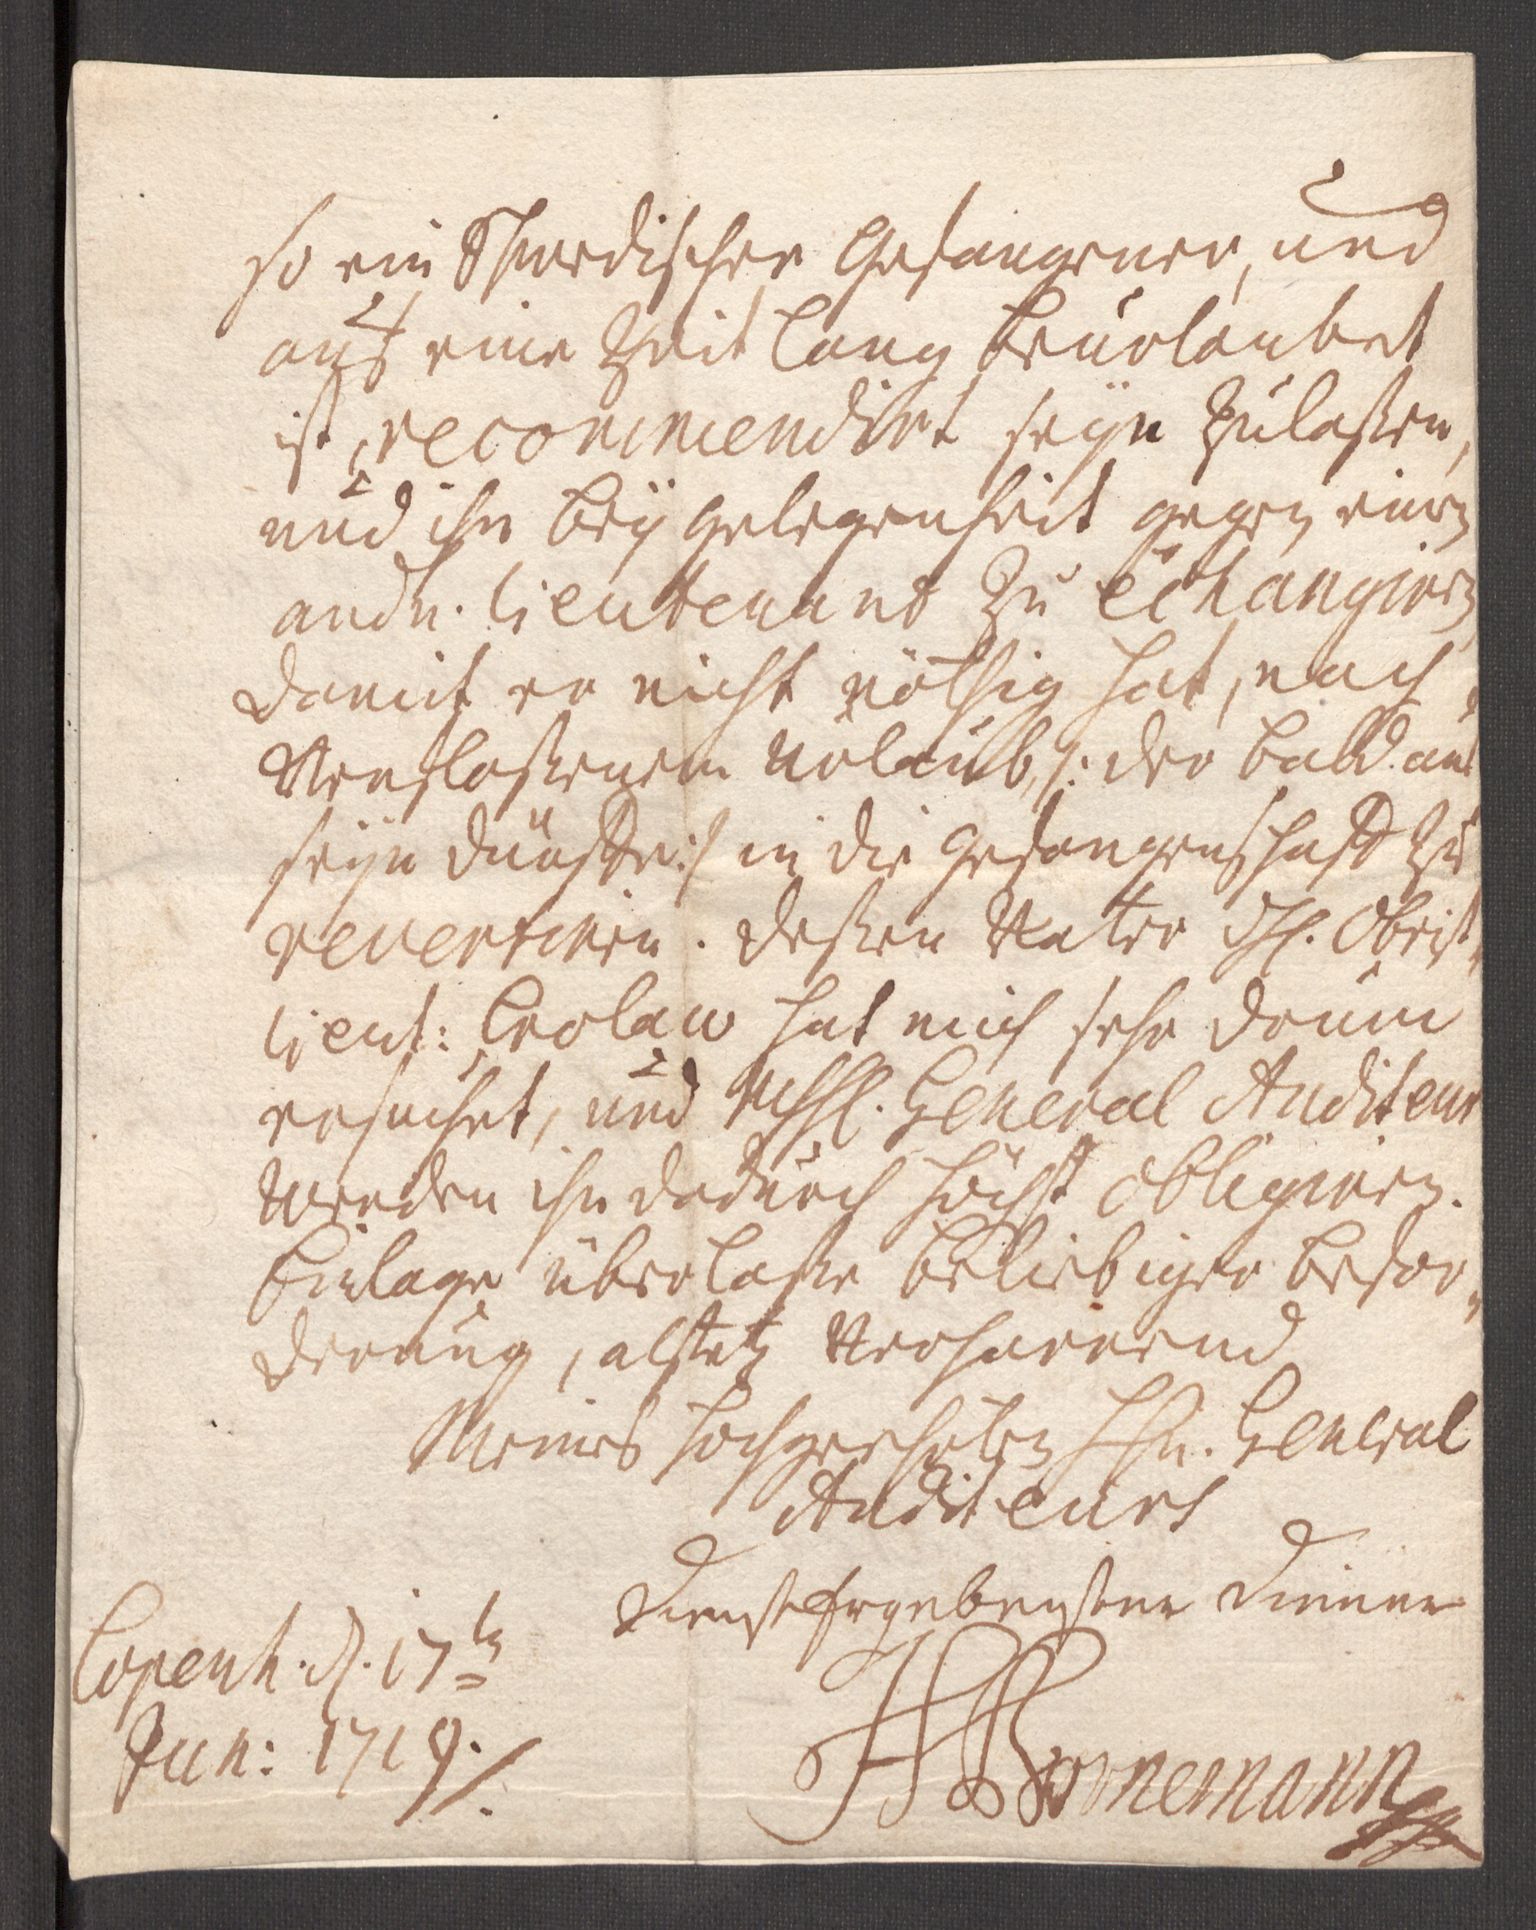 so ein Schwedischer Gefangener, und
auf eine Zeit lang beurlaubet
ist, recommendirt seyn zulaßen,
und ihn beÿ gelegenheit gegen einen
andn. Lieutenant zu echangiren
damit er nicht nöthig hat, nach
Verfloßenem Urlaub, /: der bald aus
seÿn dürffte :/ in die Gefangenschafft zu
revertiren. Deßen Vater H. Obrist
Lieut: Crolau hat mich sehr drum
ersuchet, und MhhH. General Auditeur
werden ihn dadurch höchst obligiren.
Einlage überlaße beliebiger befor-
derung, alstetz verharrend
Meines hochgeehrten HEn. General
Auditeurs
DienstErgebenster Diener
HBornemann
Copenh. d. 17ten
Jun: 1719.